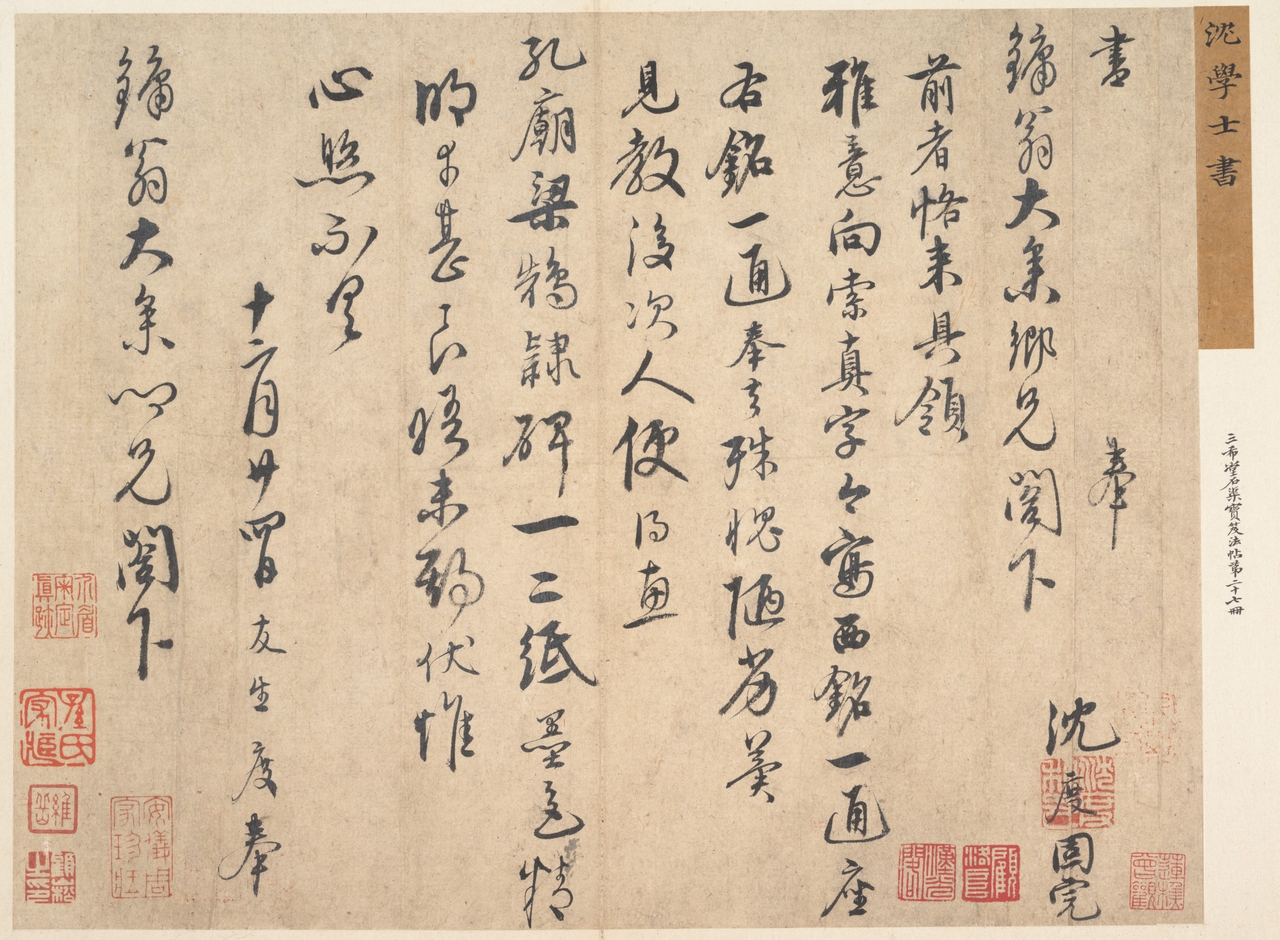 沈學士書
三希堂石渠寶笈法帖第二十七冊
書 奉
鏞翁大參鄉兄閣下 沈度固完
前者恪来具領
雅意向索真字今寫西銘一通座
右銘一通奉去殊愧陋劣冀
見教後次人便得惠
孔廟梁鵠隸碑一二紙墨色精
明者甚良晤未期伏惟
心照不具
十二月廿四日友生度奉
鏞翁大參心兄閣下